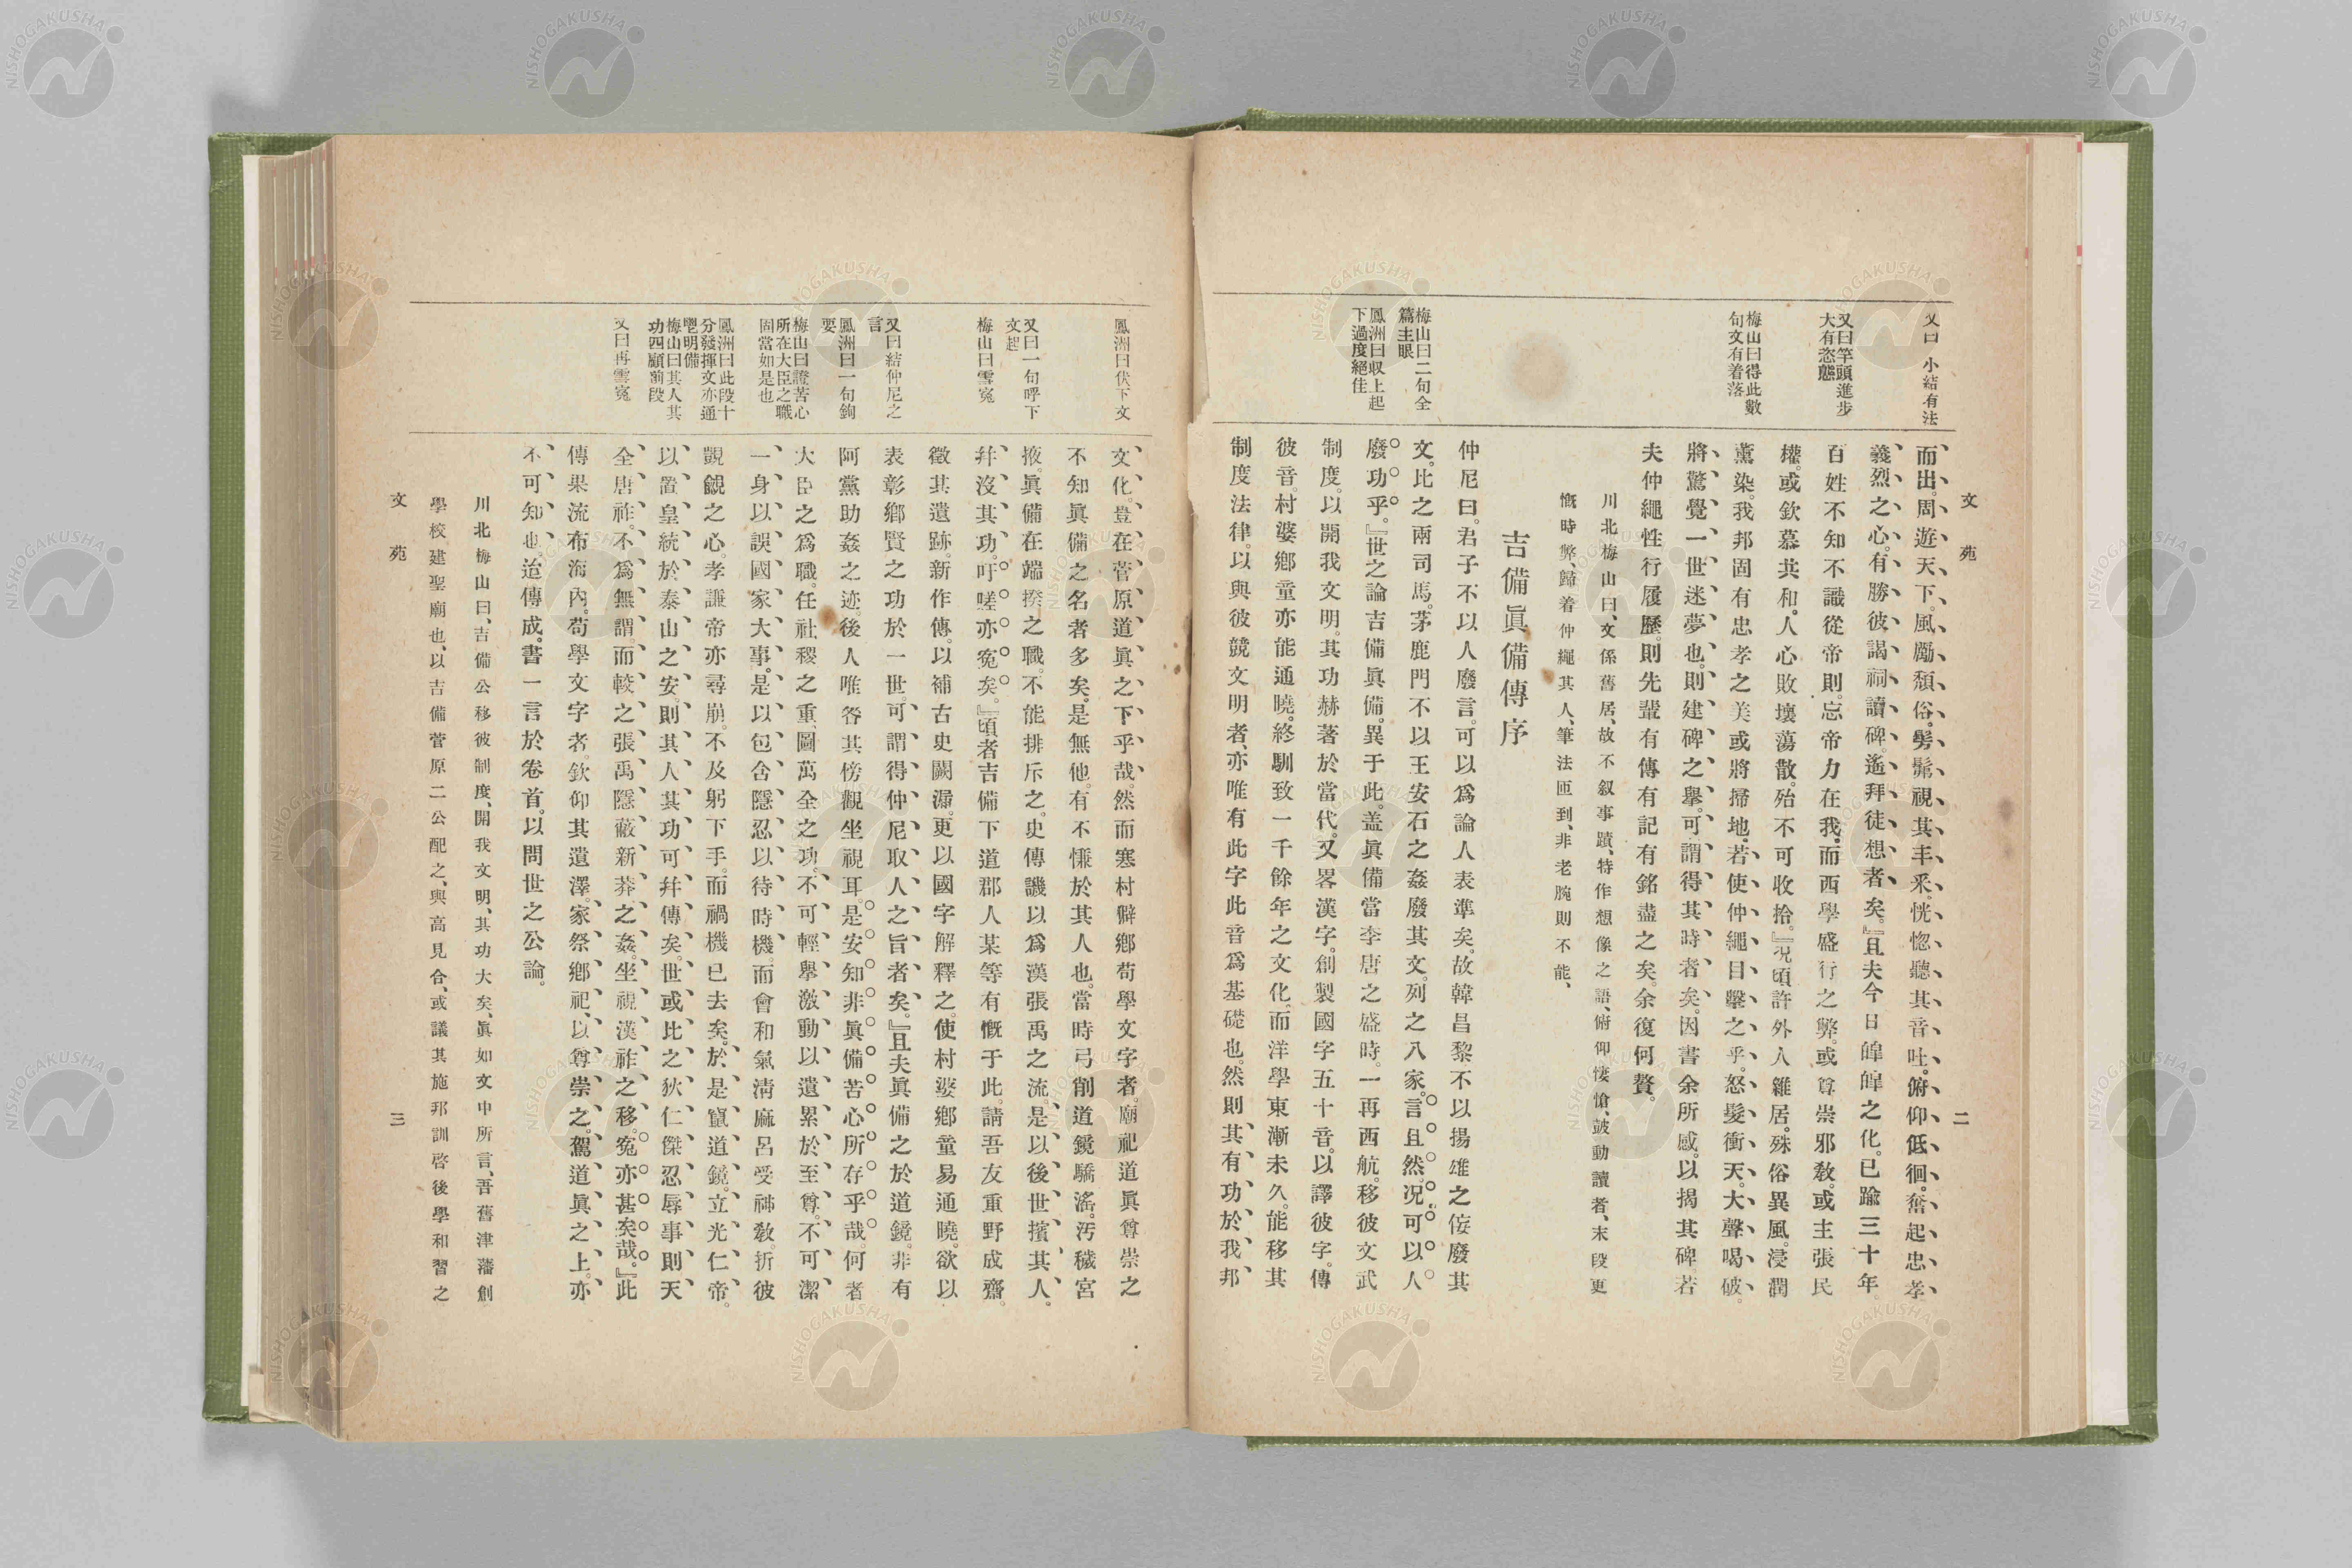 文苑
二
又曰小結有法
又曰竿頭進步
大有恣態
梅山曰得此數
句文有着落
梅山曰二句全
篇主眼
鳳洲曰収上起
下過度絕佳
而出。周遊天下。風勵頹俗。髣髴視其丰采。恍惚聽其音吐。俯仰低徊。奮起忠孝
義烈之心。有勝彼謁祠讀碑。遙拜徒想者矣。』且夫今日皥皥之化。已踰三十年。
百姓不知不識從帝則。忘帝力在我。而西學盛行之弊。或尊崇邪敎。或主張民
權。或欽慕共和。人心敗壞蕩散。殆不可收拾。』況頃許外人雜居。殊俗異風。浸潤
薰染。我邦固有忠孝之美或將掃地。若使仲繩目擊之乎。怒髮衝天。大聲喝破。
將驚覺一世迷夢也。則建碑之擧。可謂得其時者矣。因書余所感。以揭其碑。若
夫仲繩性行履歷。則先輩有傳有記有銘盡之矣。余復何贅。
川北梅山曰、文係舊居、故不叙事蹟、特作想像之語、俯仰悽愴、鼓動讀者、末段更
慨時弊、歸着仲繩其人、筆法匝到、非老腕則不能、
吉備眞備傳序
仲尼曰。君子不以人廢言。可以爲論人表準矣。故韓昌黎不以揚雄之侫廢其
文。比之兩司馬。茅鹿門不以王安石之姦廢其文。列之八家。言且然。況可以人
廢功乎。』世之論吉備眞備。異于此。盖眞備當李唐之盛時。一再西航。移彼文武
制度。以開我文明。其功赫著於當代。又畧漢字。創製國字五十音。以譯彼字。傳
彼音。村婆鄕童亦能通曉。終馴致一千餘年之文化。而洋學東漸未久。能移其
制度法律。以與彼競文明者、亦唯有此字此音爲基礎也。然則其有功於我邦
鳳洲曰伏下文
又曰一句呼下
文起
梅山曰雪寃
又曰結仲尼之
言
鳳洲曰一句鉤
要
梅山曰證苦心
所在大臣之職
固當如是也
鳳洲曰此段十
分發揮文亦通
鬯明備
梅山曰其人其
功四顧前段
又曰再雪寃
文化。豈在菅原道眞之下乎哉。然而寒村僻鄕苟學文字者。廟祀道眞尊崇之
不知眞備之名者多矣。是無他。有不慊於其人也。當時弓削道鏡驕滛。汚穢宮
掖。眞備在端揆之職。不能排斥之。史傳譏以爲漢張禹之流。是以後世擯其人。
幷沒其功。吁嗟亦寃矣。』頃者吉備下道郡人某等有慨于此。請吾友重野成齋。
徵其遺跡。新作傳。以補古史闕漏。更以國字解釋之。使村婆鄕童易通曉。欲以
表彰鄕賢之功於一世。可謂得仲尼取人之旨者矣。』且夫眞備之於道鏡。非有
阿黨助姦之迹。後人唯咎其傍觀坐視耳。是安知非眞備苦心所存乎哉。何者
大臣之爲職。任社稷之重。圖萬全之功。不可輕擧激動以遺累於至尊。不可潔
一身以誤國家大事。是以包含隱忍以待時機。而會和氣淸麻呂受神敎。折彼
覬覦之心。孝謙帝亦尋崩。不及躬下手。而禍機已去矣。於是竄道鏡。立光仁帝。
以置皇統於泰山之安。則其人其功可幷傳矣。世或比之狄仁傑忍辱事則天
全唐祚。不爲無謂。而較之張禹隱蔽新莽之姦。坐視漢祚之移。寃亦甚矣哉。』此
傳果流布海內。苟學文字者。欽仰其遺澤。家祭鄕祀。以尊崇之。駕道眞之上。亦
不可知也。迨傳成。書一言於卷首。以問世之公論。
川北梅山曰、吉備公移彼制度、開我文明、其功大矣、眞如文中所言、吾舊津藩創
學校建聖廟也、以吉備菅原二公配之、與高見合、或議其施邦訓啓後學和習之
文苑
三